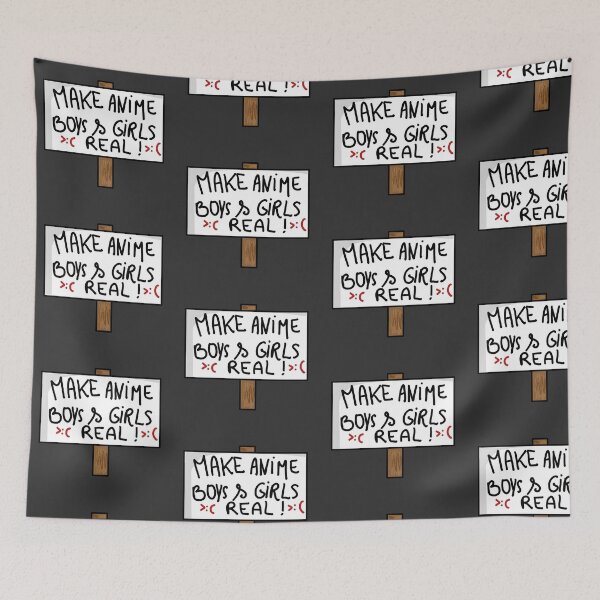 >:( REAL ! >:(
>:( REAL
MAKE ANIME
BOYS & GIRLS
>:( REAL ! >:(
MAKE ANIME
BOYS & GIRLS
>:( REAL ! >:(
MAKE ANIME
BOYS & GIRLS
>:( REAL ! >:(
MAKE ANI
BOYS & GI
>:( REAL !
MAKE ANIME
BOYS & GIRLS
>:( REAL ! >:(
MAKE ANIME
BOYS & GIRLS
>:( REAL ! >:(
MAKE ANIME
BOYS & GIRLS
>:( REAL ! >:(
MAKE ANI
BOYS & GIR
>:( REAL !
MAKE ANIME
BOYS & GIRLS
>:( REAL ! >:(
MAKE ANIME
BOYS & GIRLS
>:( REAL ! >:(
MAKE ANIME
BOYS & GIRLS
>:( REAL ! >:(
MAKE ANI
BOYS & GIR
>:( REAL !